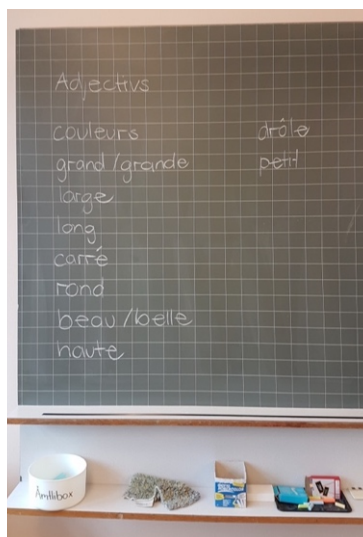 Adjectivs
couleurs
grand/grande
large
long
carré
rond
beau/belle
haute
drôle
petit
Ämtlibox